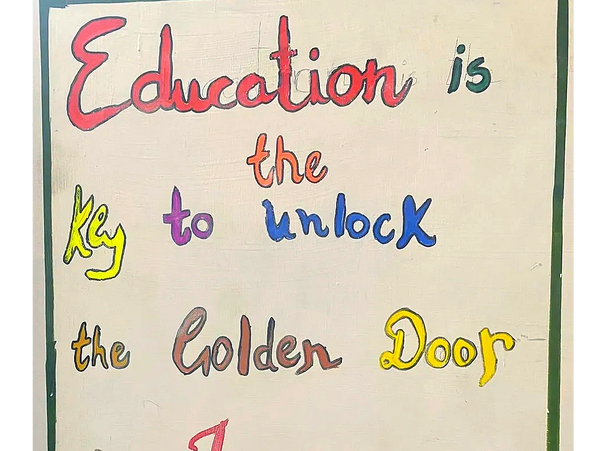 Education is
the
Key to unlock
the Golden Door